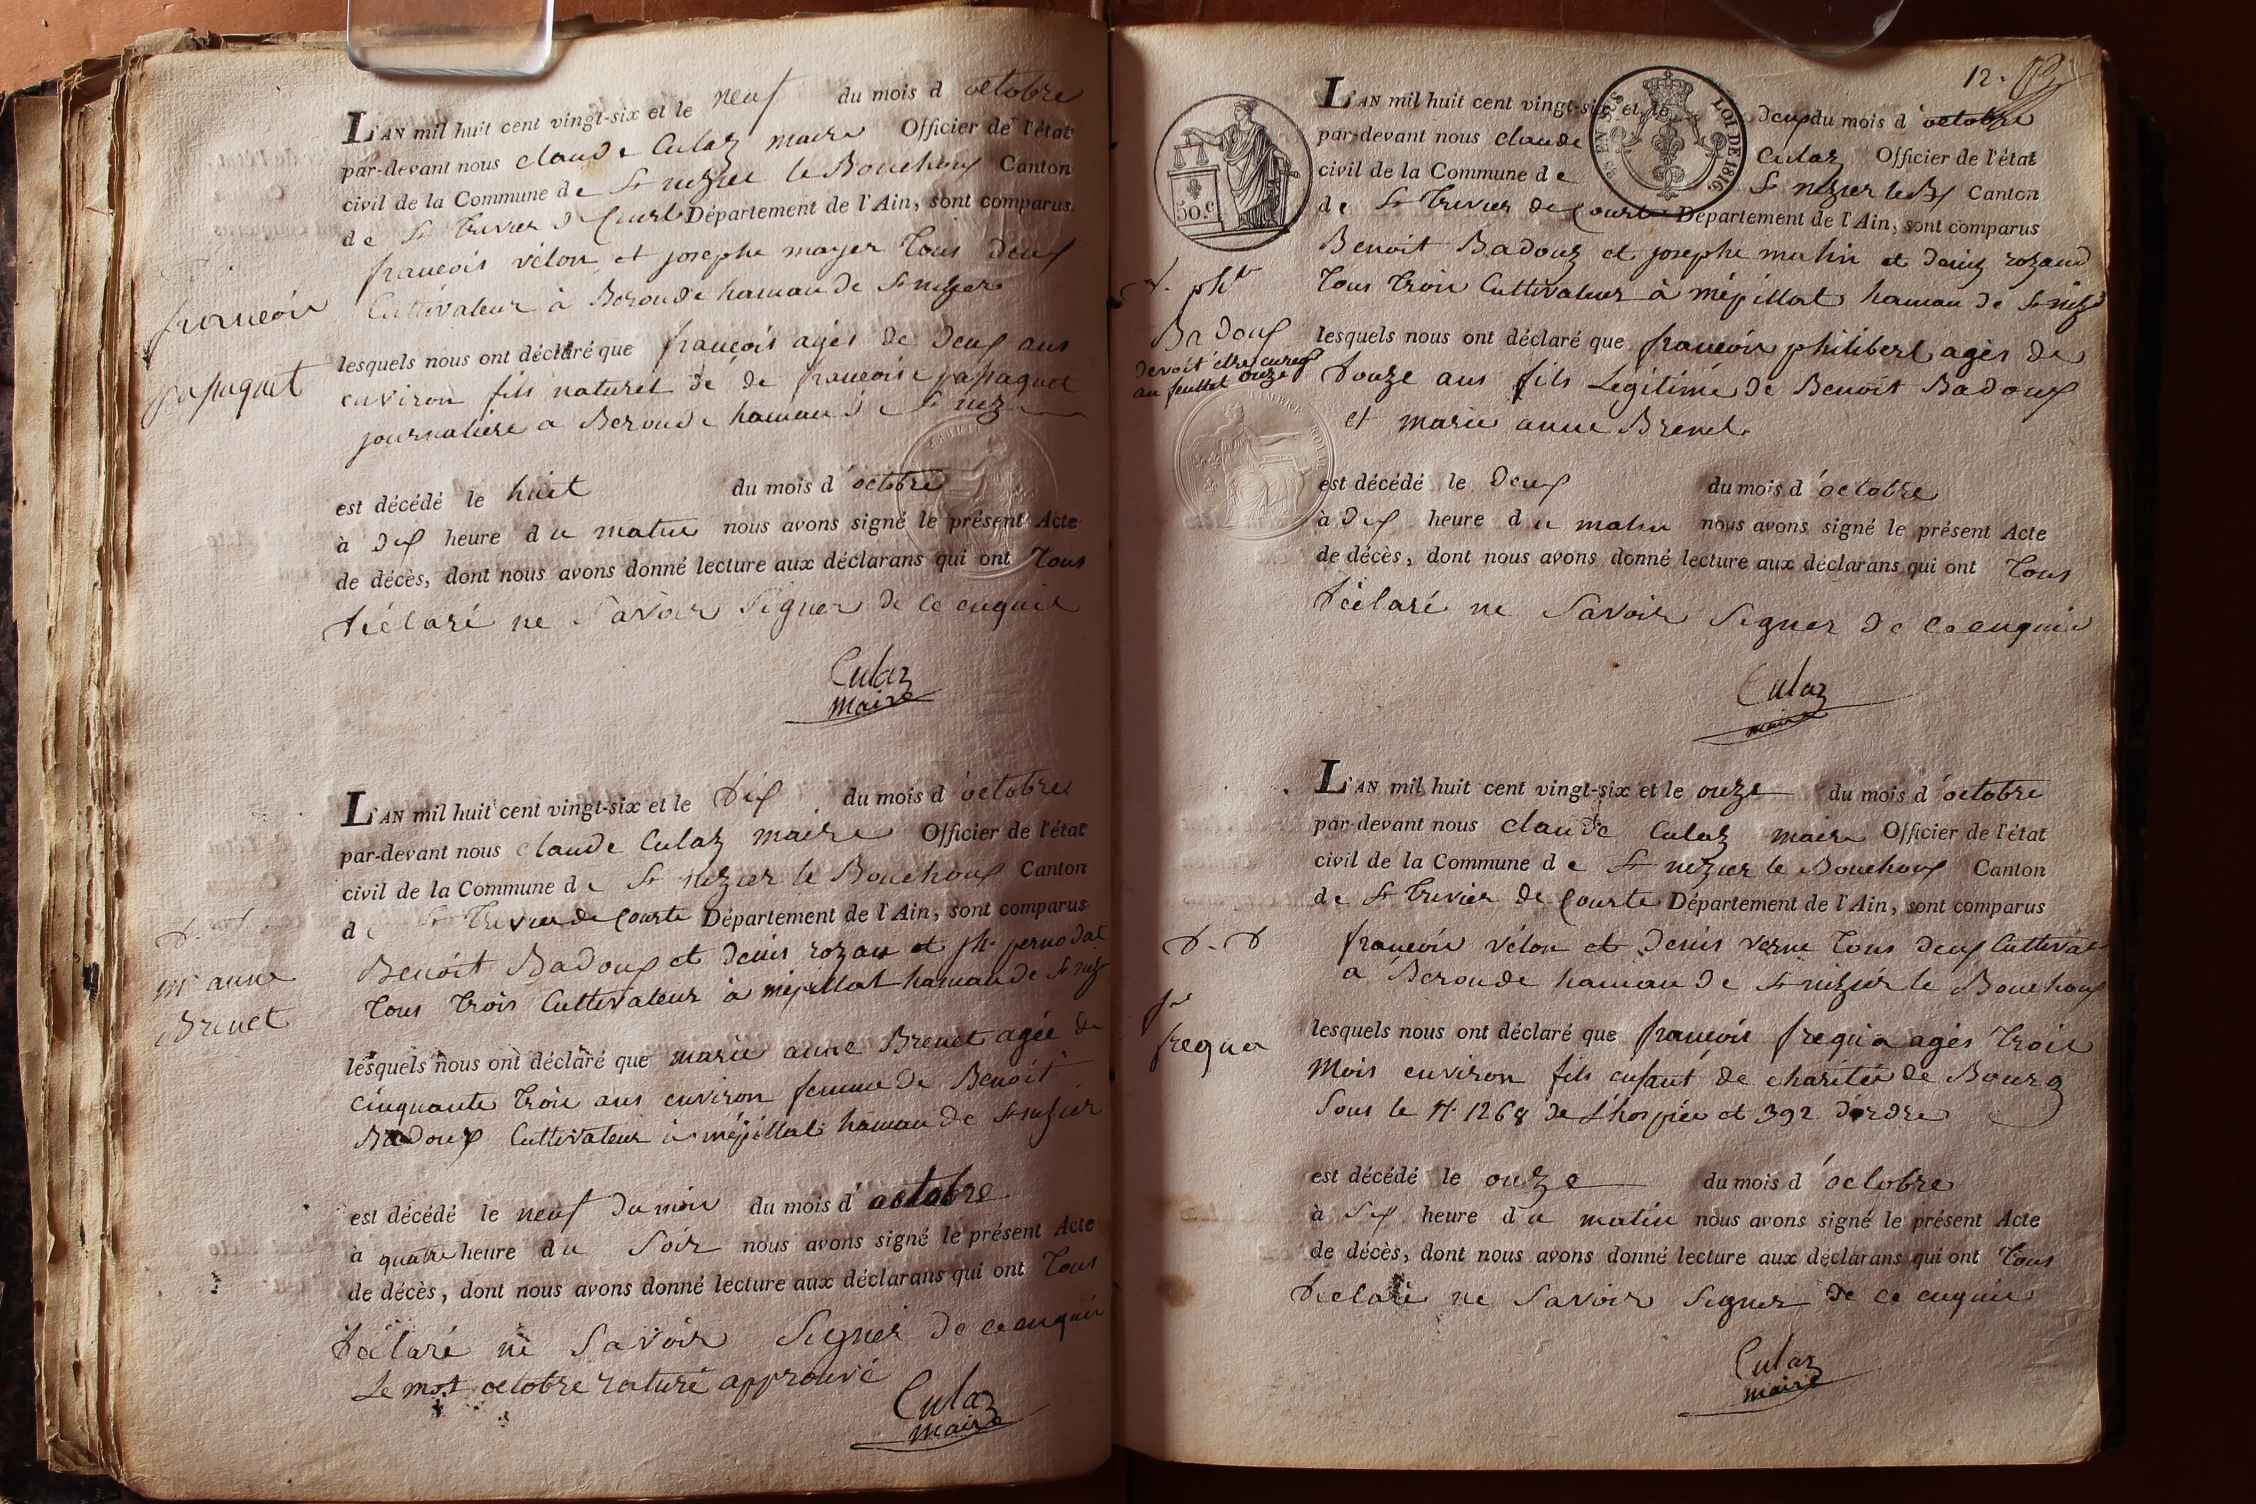 L'AN mil huit cent vingt-six et le neuf du mois d'octobre
par-devant nous claude Culaz maire Officier de l'état
civil de la Commune de St nizier le Bouchoux Canton
de St trivier d Court Département de l'Ain, sont comparus
françois vélon et josephe mayer tous deux
Cultivateur à Beronde hamau de St nizier
françois
papaquet
lesquels nous ont déclaré que françois agés de deux ans
environ fils naturel de de francoise papaquet
journaliere a Beronde hamau de St niz
est décédé le huit du mois d'octobre
à dix heure du matin nous avons signé le présent Acte
de décès, dont nous avons donné lecture aux déclarans qui ont tous
déclaré ne savoir signer de ce enquis
Culaz
maire
L'AN mil huit cent vingt-six et le dix du mois d'octobre
par-devant nous claude Culaz maire Officier de l'état
civil de la Commune de St nizier le Bouchoux Canton
de St trivier de Courte Département de l'Ain, sont comparus
Benoit Badoux et denis rozan et ph. pernodat
tous trois Cultivateur à mépillat hamau de St niz
me anne
Brenet
lesquels nous ont déclaré que marie anne Brenet agée de
cinquante trois ans environ femme de Benoit
Badoux Cultivateur à mépillat hamau de St nizier
est décédé le neuf du mois du mois d'octobre
à quatre heure du soir nous avons signé le présent Acte
de décès, dont nous avons donné lecture aux déclarans qui ont tous
déclaré ne savoir signer de ce enquis
Le mot octobre raturé approuvé
Culaz
maire
12.
50.c
LOI DE 1816
L'AN mil huit cent vingt-six et le deux du mois d'octobre
par-devant nous claude Culaz Officier de l'état
civil de la Commune de St nizier le B Canton
de St trivier de Courte Département de l'Ain, sont comparus
Benoit Badouz et josephe mulin et deniz rozand
tous trois Cultivateur à mépillat hamau de St niz
ph
Badoux
devoit être enreg
au feuillet onze
lesquels nous ont déclaré que françois philibert agés de
douze ans fils Legitime de Benoit Badoux
et marie anne Brenet
est décédé le deux du mois d'octobre
à dix heure du matin nous avons signé le présent Acte
de décès, dont nous avons donné lecture aux déclarans qui ont tous
déclaré ne savoir signer de ce enquis
Culaz
maire
L'AN mil huit cent vingt-six et le onze du mois d'octobre
par-devant nous claude Culaz maire Officier de l'état
civil de la Commune de St nizier le Bouchoux Canton
de St trivier de Courte Département de l'Ain, sont comparus
françois vélon et denis verne tous deux Cultivat
a Beronde hamau de St nizier le Bouchoux
D. D
frs
frequa
lesquels nous ont déclaré que françois frequa agés trois
mois environ fils enfant de charitée de Bourg
sous le N. 1268 de L'hospice et 392 d'ordre
est décédé le onze du mois d'octobre
à six heure du matin nous avons signé le présent Acte
de décès, dont nous avons donné lecture aux déclarans qui ont tous
déclaré ne savoir signer de ce enquis
Culaz
maire